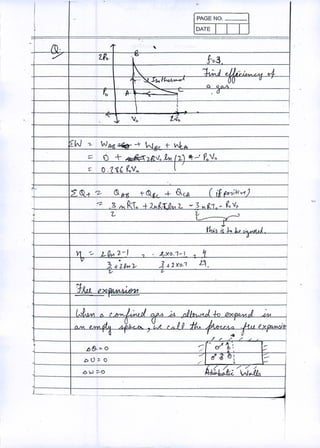 PAGE NO.
DATE
Q.
B
2P₀
f=3,
Isothermal
Find efficiency of
P₀ A C a gas.
V₀ 2V₀
ΣW = W_AB + W_BC + W_CA
= 0 + 2P₀V₀ ln(2) - P₀V₀
= 0.386 P₀V₀
ΣQ+ = Q_AB + Q_BC + Q_CA (if positive)
= 3/2 nRT₀ + 2nRT₀ ln2 - 3/2 nRT₀ - P₀V₀
this is to be ignored.
η = 2ln2-1 / 3/2+2ln2 = 2x0.7-1 / 3/2+2x0.7 = 4
Free expansion
When a confined gas is allowed to expand in
an empty space, we call the process free expansion
ΔQ=0
ΔU=0
ΔW=0
Adiabatic Walls